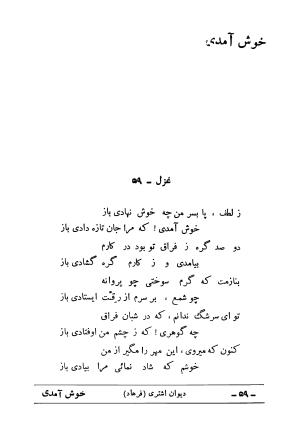 خوش آمدی
غزل ـ ۵۹
ز لطف ، پا بسر من چه خوش نهادی باز
خوش آمدی ! که مرا جان تازه دادی باز
دو صد گره ز فراق تو بود در کارم
بیامدی و ز کارم گره گشادی باز
بنازمت که گرم سوختی چو پروانه
چو شمع ، بر سرم از رقّت ایستادی باز
تو ای سرشگ ندانم ، که در شبان فراق
چه گوهری ! که ز چشم من اوفتادی باز
کنون که میروی ، این مهر را مگیر از من
خوشم که شاد نمائی مرا بیادی باز
ـ ۵۹ ـ دیوان اشتری (فرهاد) خوش آمدی